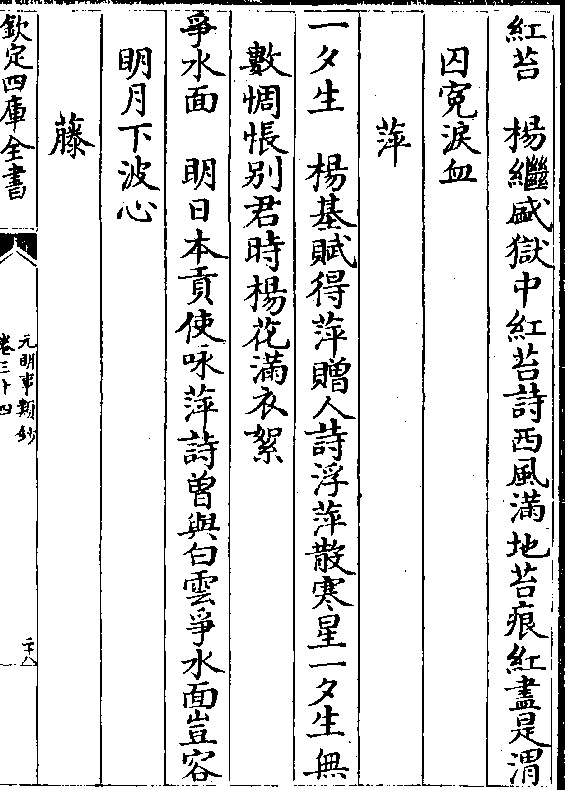 紅苔　楊繼盛獄中紅苔詩西風滿地苔痕紅盡是渭
囚寃淚血
萍
一夕生　楊基賦得萍贈人詩浮萍散寒星一夕生無
數惆悵别君時楊花滿衣絮
爭水面　明日本貢使咏萍詩曽與白雲爭水面豈容
明月下波心
藤
欽定四庫全書
元明事類鈔
卷三十四
二十八